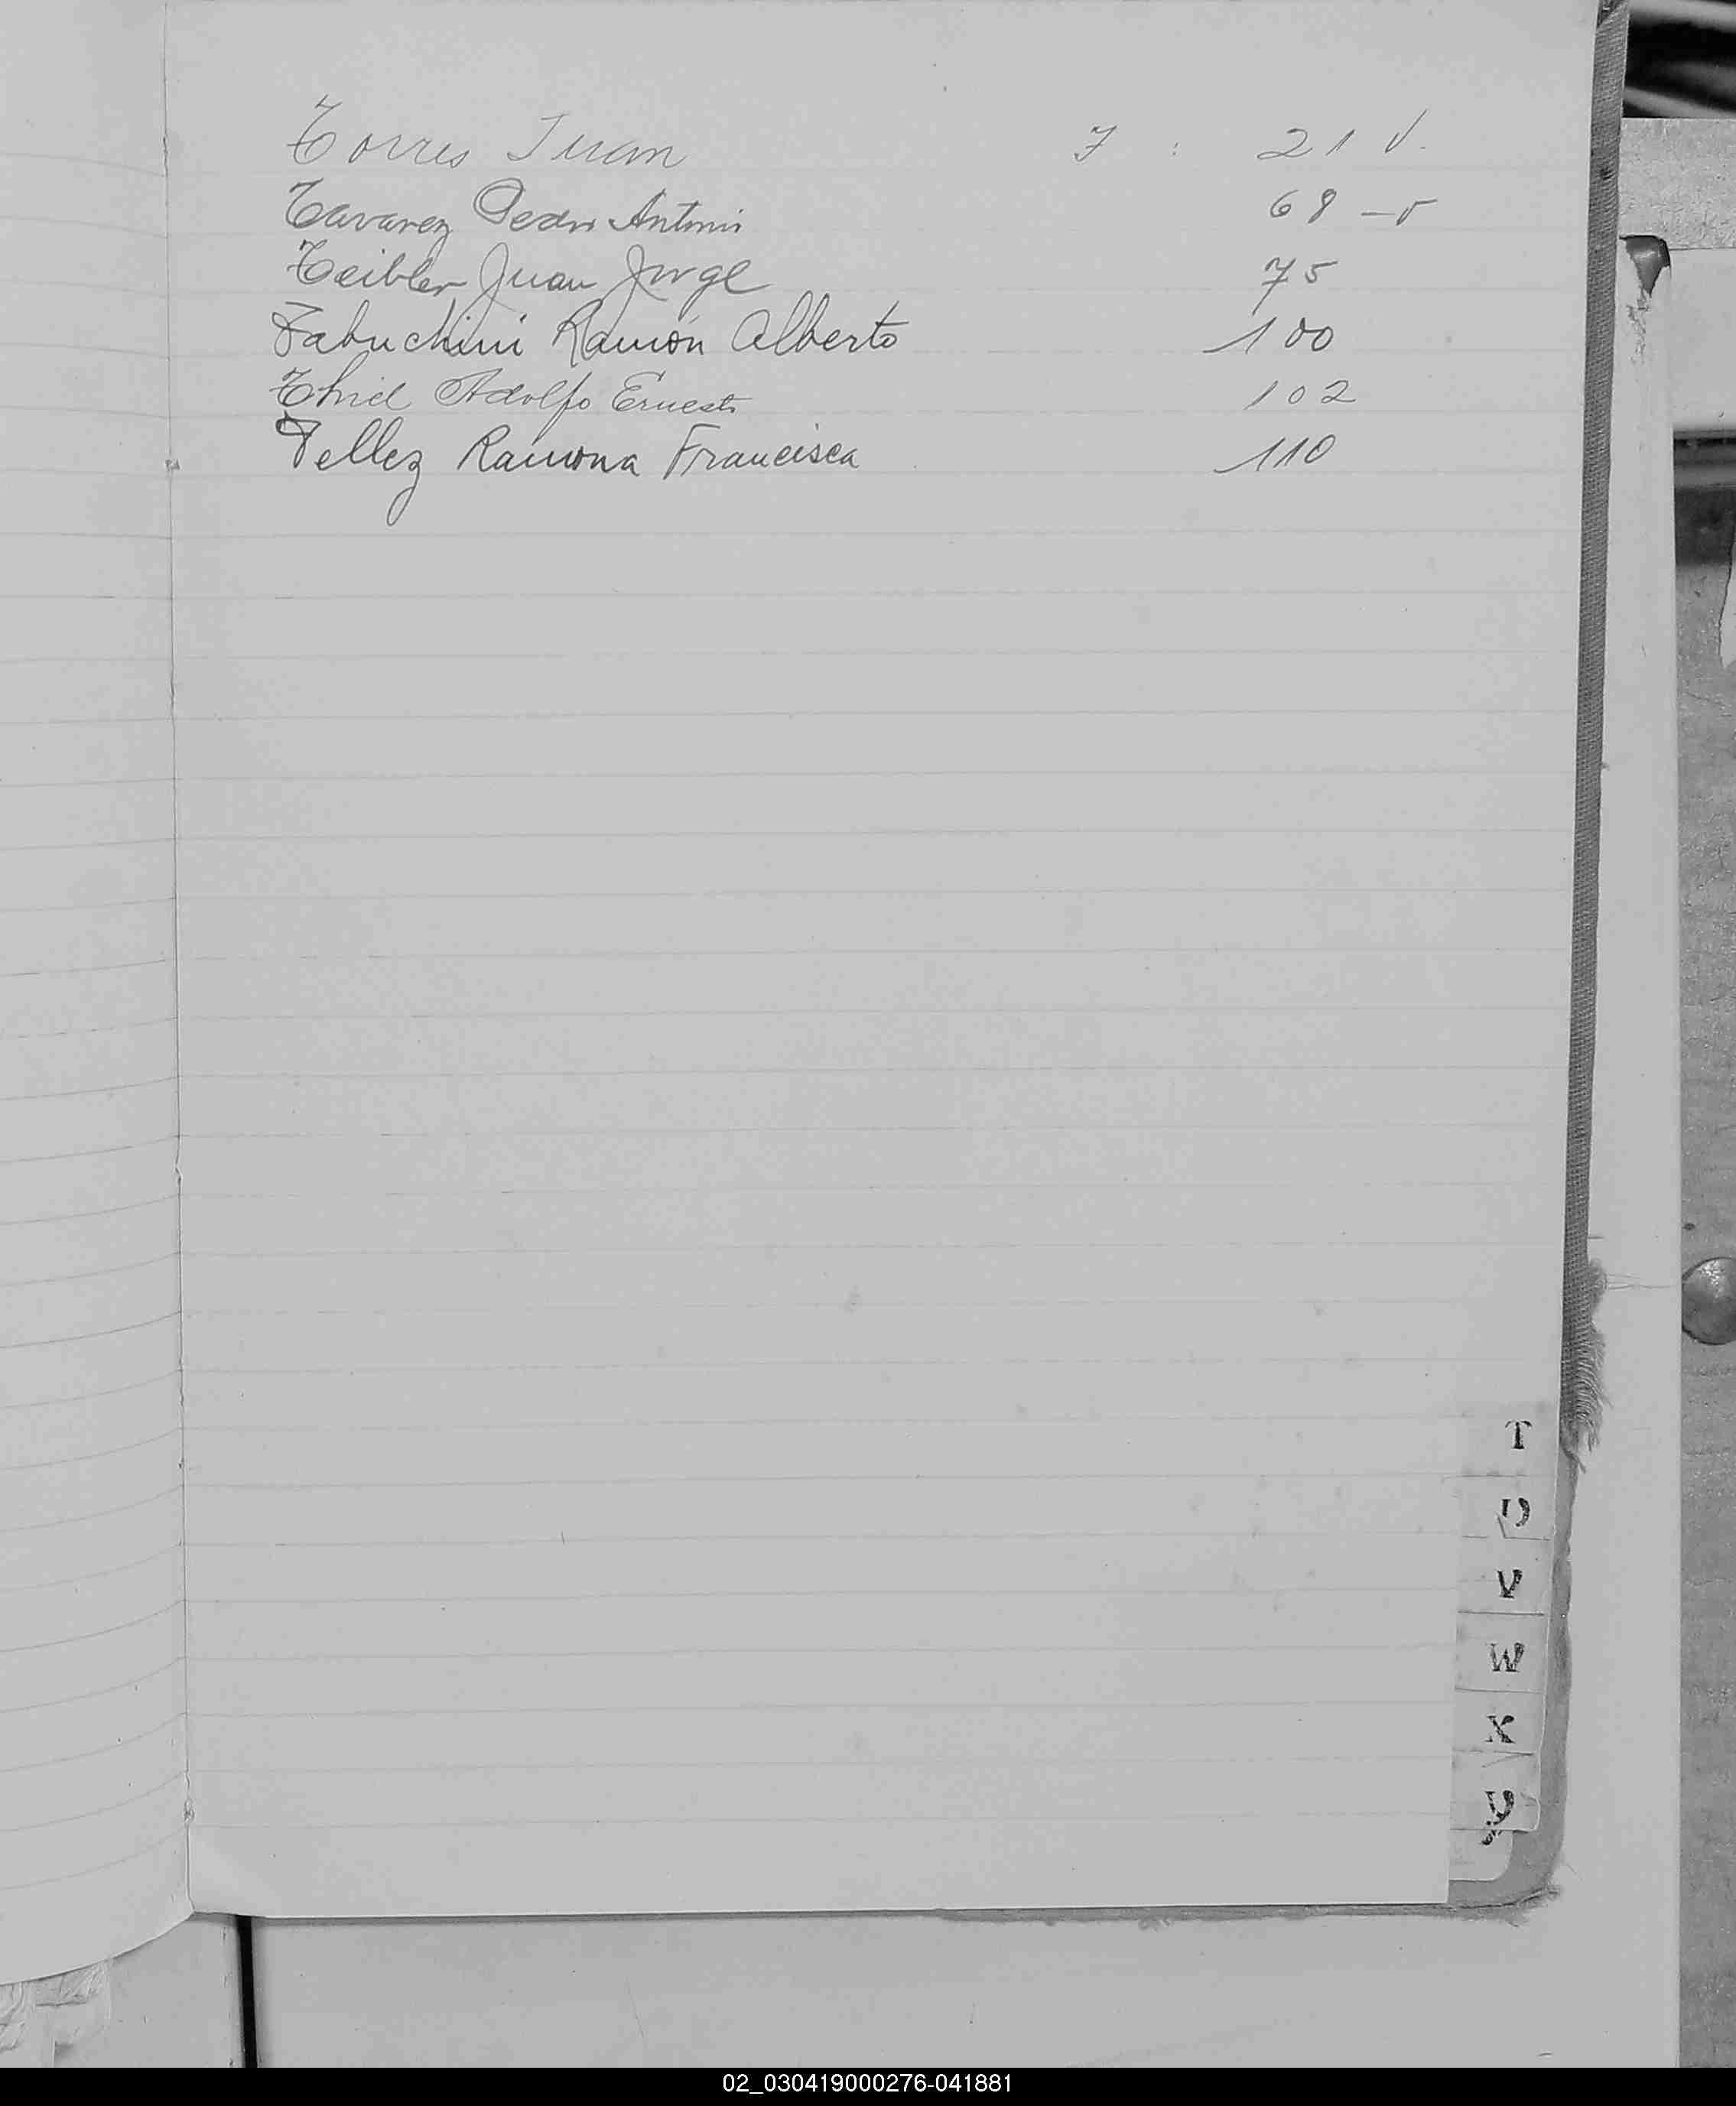 Torres Juan F : 21 v.
Tavarez Pedro Antonio 68 - v
Teibler Juan Jorge 75
Tabuchini Ramón Alberto 100
Thiel Adolfo Ernesto 102
Tellez Ramona Francisca 110
T
U
V
W
X
Y
02_030419000276-041881